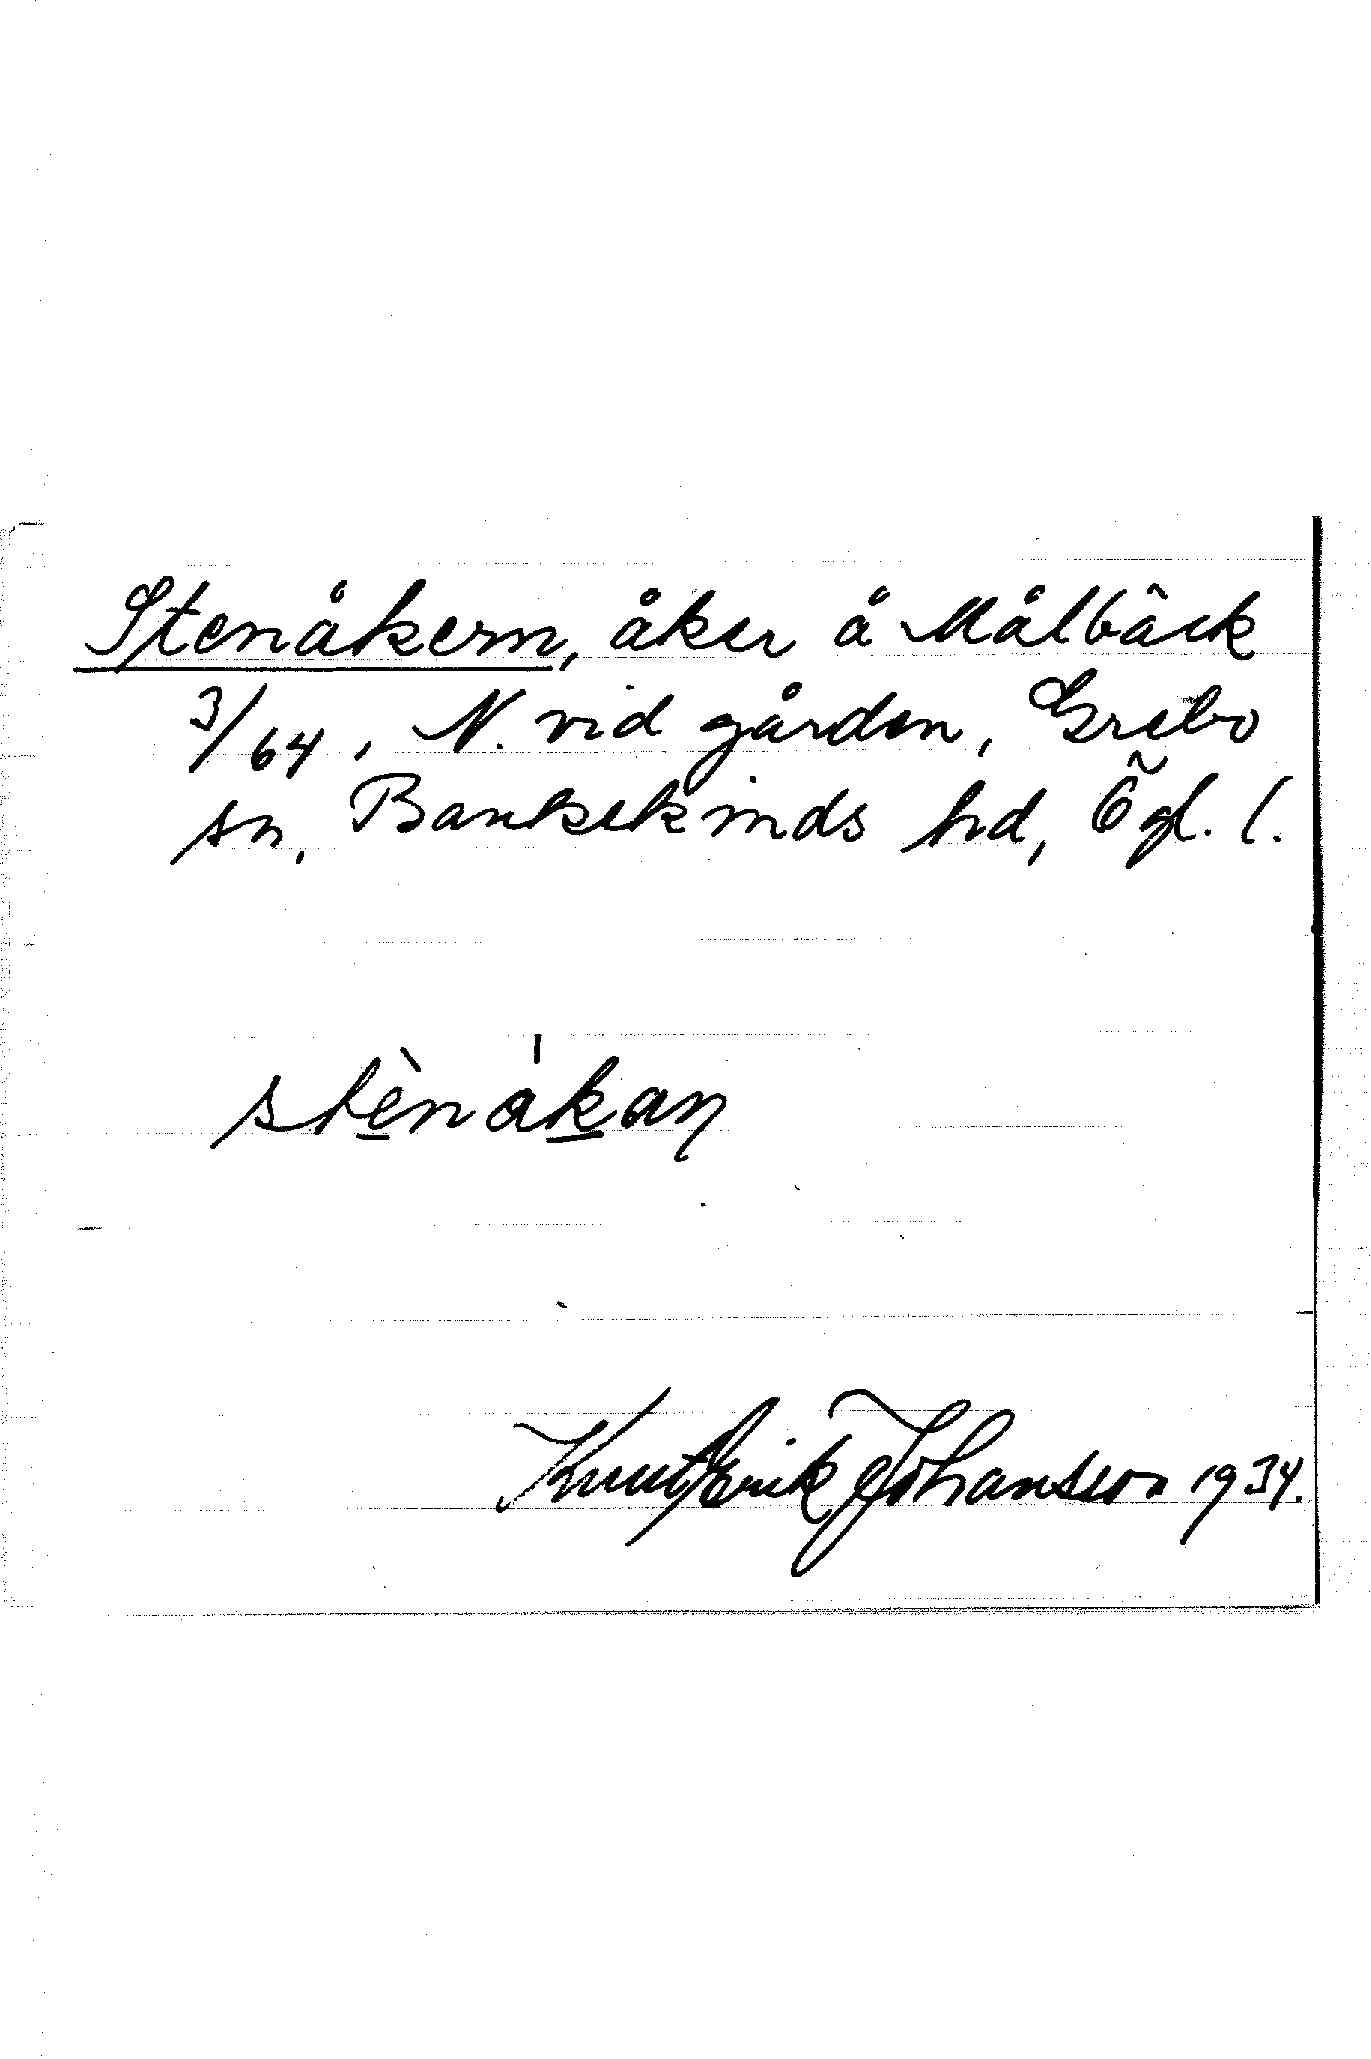 Stenåkern, åker å Målbäck
3/64, N. vid gården, Grebo
sn, Bankekinds hd, Ögl. l.
stènåkan
Knut Erik Johansson 1934.